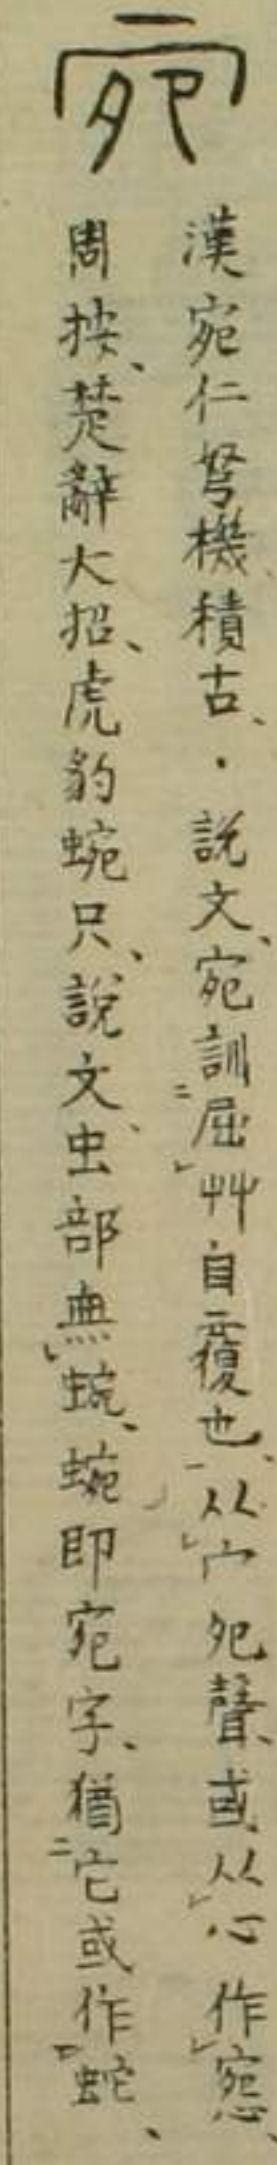 宛
漢宛仁弩機、積古、・說文、宛訓屈艸自覆也、从宀夗聲、或从心作惌、
周按、楚辭大招、虎豹蜿只、說文、虫部無蜿、蜿即宛字、猶它或作蛇、